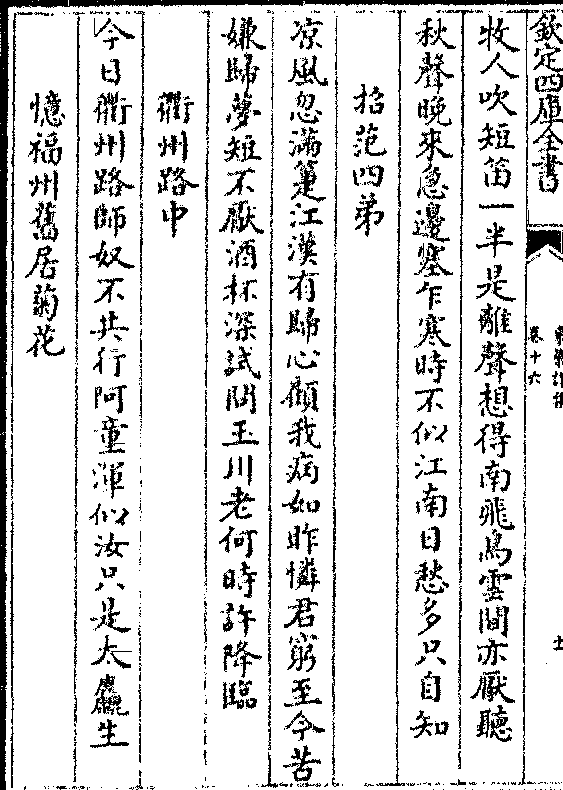 欽定四庫全書
卷十六
牧人吹短笛一半是離聲想得南飛鳥雲間亦厭聽
秋聲晚來急邊塞乍寒時不似江南日愁多只自知
招范四弟
凉風忽滿篷江漢有歸心顧我病如昨憐君窮至今苦
嫌歸夢短不厭酒杯深試問玉川老何時許降臨
衢州路中
今日衢州路師奴不共行阿童渾似汝只是太羸生
憶福州舊居菊花